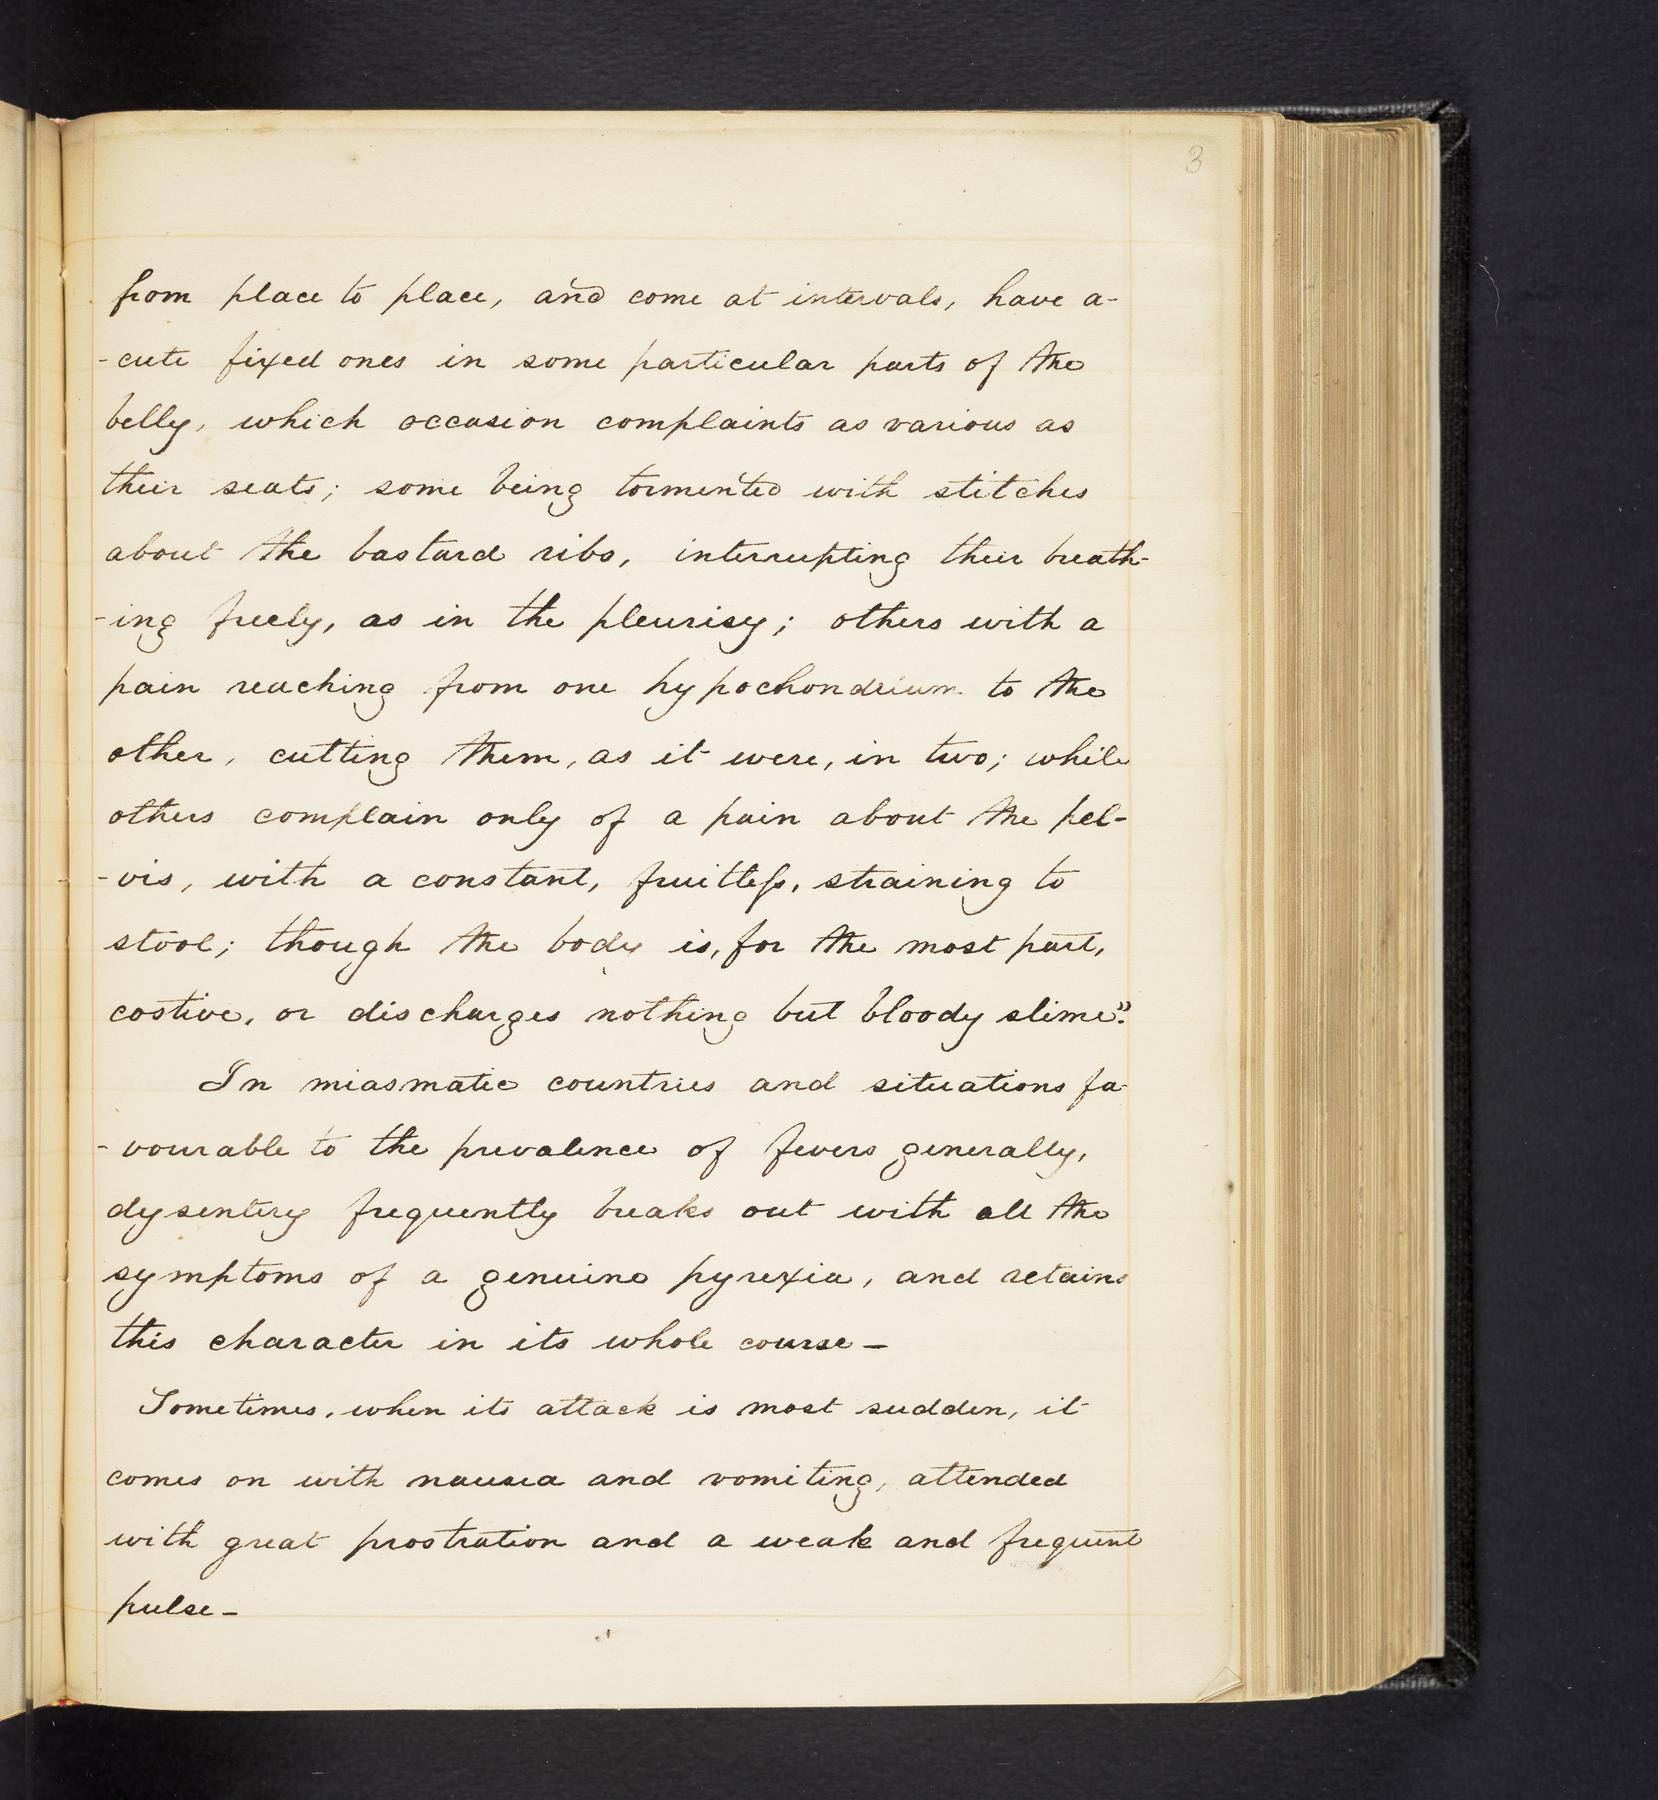 3
from place to place, and come at intervals, have a-
-cute fixed ones in some particular parts of the
belly, which occasion complaints as various as
their seats; some being tormented with stitches
about the bastard ribs, interrupting their breath-
-ing freely, as in the pleurisy; others with a
pain reaching from one hypochondrium to the
other, cutting them, as it were, in two; while
others complain only of a pain about the pel-
-vis, with a constant, fruitleſs, straining to
stool; though the body is, for the most part,
costive, or discharges nothing but bloody slime".
In miasmatic countries and situations fa-
-vourable to the prevalence of fevers generally,
dysentery frequently breaks out with all the
symptoms of a genuine pyrexia, and retains
this character in its whole course—
Sometimes, when its attack is most sudden, it
comes on with nausea and vomiting, attended
with great prostration and a weak and frequent
pulse—